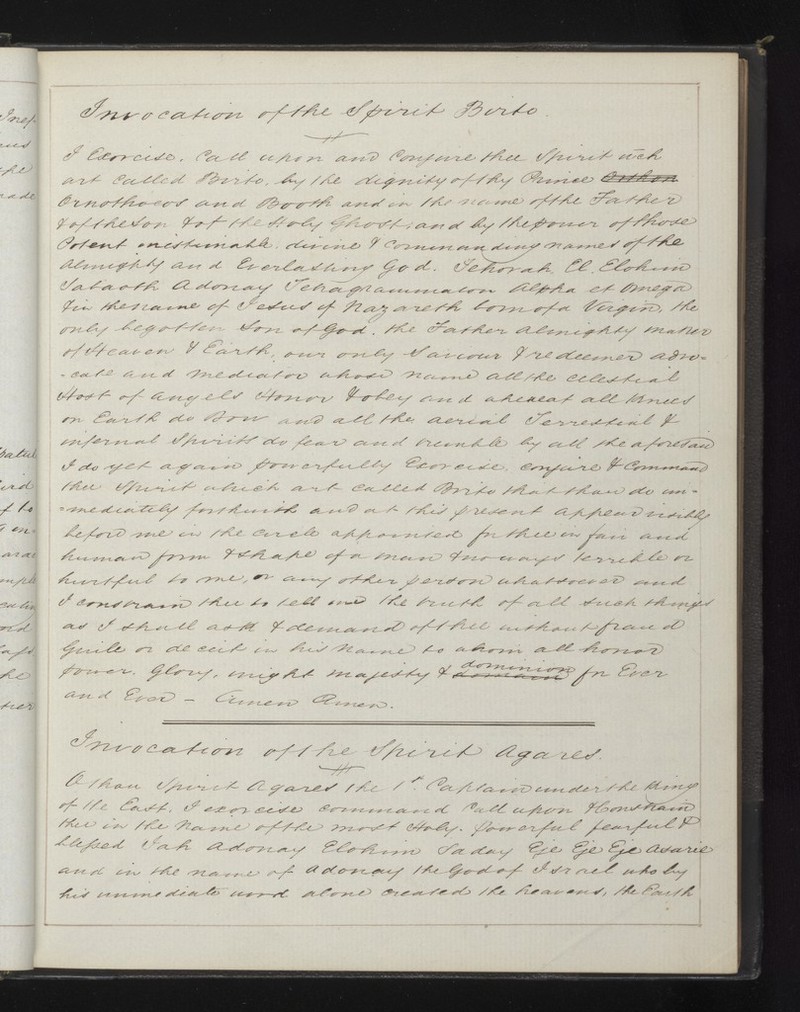 Invocation of the Spirit Birto.
I Exorcise. Call upon and Conjure thee Spirit wch
art Called Birto, by the dignity of thy Prince Orthon
Ornothocos and Booth and in the name of the Father
& of the Son & of the Holy Ghost, and by the power of those
Potent inestimable, divine & Commanding names of the
Almighty and Everlasting God. Jehovah, El, Elohim
Sabaoth Adonay Tetragrammaton Alpha et Omega
& in the name of Jesus of Nazareth born of a Virgin, the
only begotten Son of God. the Father Almighty maker
of Heaven & Earth, our only Saviour & redeemer advo=
=cate and mediator whose name all the celestial
Host of angels Honor & obey and whereat all Knees
on Earth do Bow and all the aerial Terrestial &
infernal Spirits do fear and tremble by all the aforesaid
I do yet again powerfully Exorcise, conjure & Command
thee Spirit which art called Birto that thou do im=
=mediately forthwith and at this present appear visibly
before me in the circle appointed for thee in fair and
human form & shape of a man & no ways terrible or
hurtful to me, or any other person whatsoever and
I constrain thee to tell me the truth of all such things
as I shall ask & demand of thee without fraud
Guile or deceit in his Name to whom all honor
power. Glory, might majesty & domain dominion for Ever
and Ever – Amen Amen.
Invocation of the Spirit Agares.
O thou Spirit Agares the 1st. Captain under the King
of the East. I exorcise command Call upon & Constrain
thee in the Name of the most Holy. powerful fearful &
blessed Jah Adonay Elohim Saday Eje Eje Eje Asarie
and in the name of Adonay the God of Israel who by
his immediate word alone created the heavens, the Earth
Inef
nade